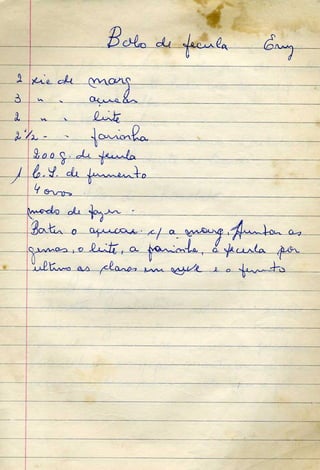 Bolo de fecula Eny
2 xic de marg
3 " " açucar
2 " " leite
2 1/2 - " farinha
200 g. de fecula
1 C. S. de fermento
4 ovos
modo de fazer -
Bater o açucar c/ a marg, Juntar as
gemas, o leite, a farinha, a fecula por
ultimo as claras em neve e o fermto